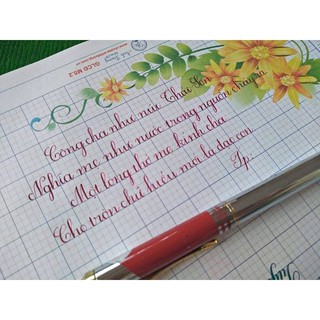 GLCĐ M5.2
Công cha như núi Thái Sơn
Nghĩa mẹ như nước trong nguồn chảy ra
Một lòng thờ mẹ kính cha
Cho tròn chữ hiếu mới là đạo con